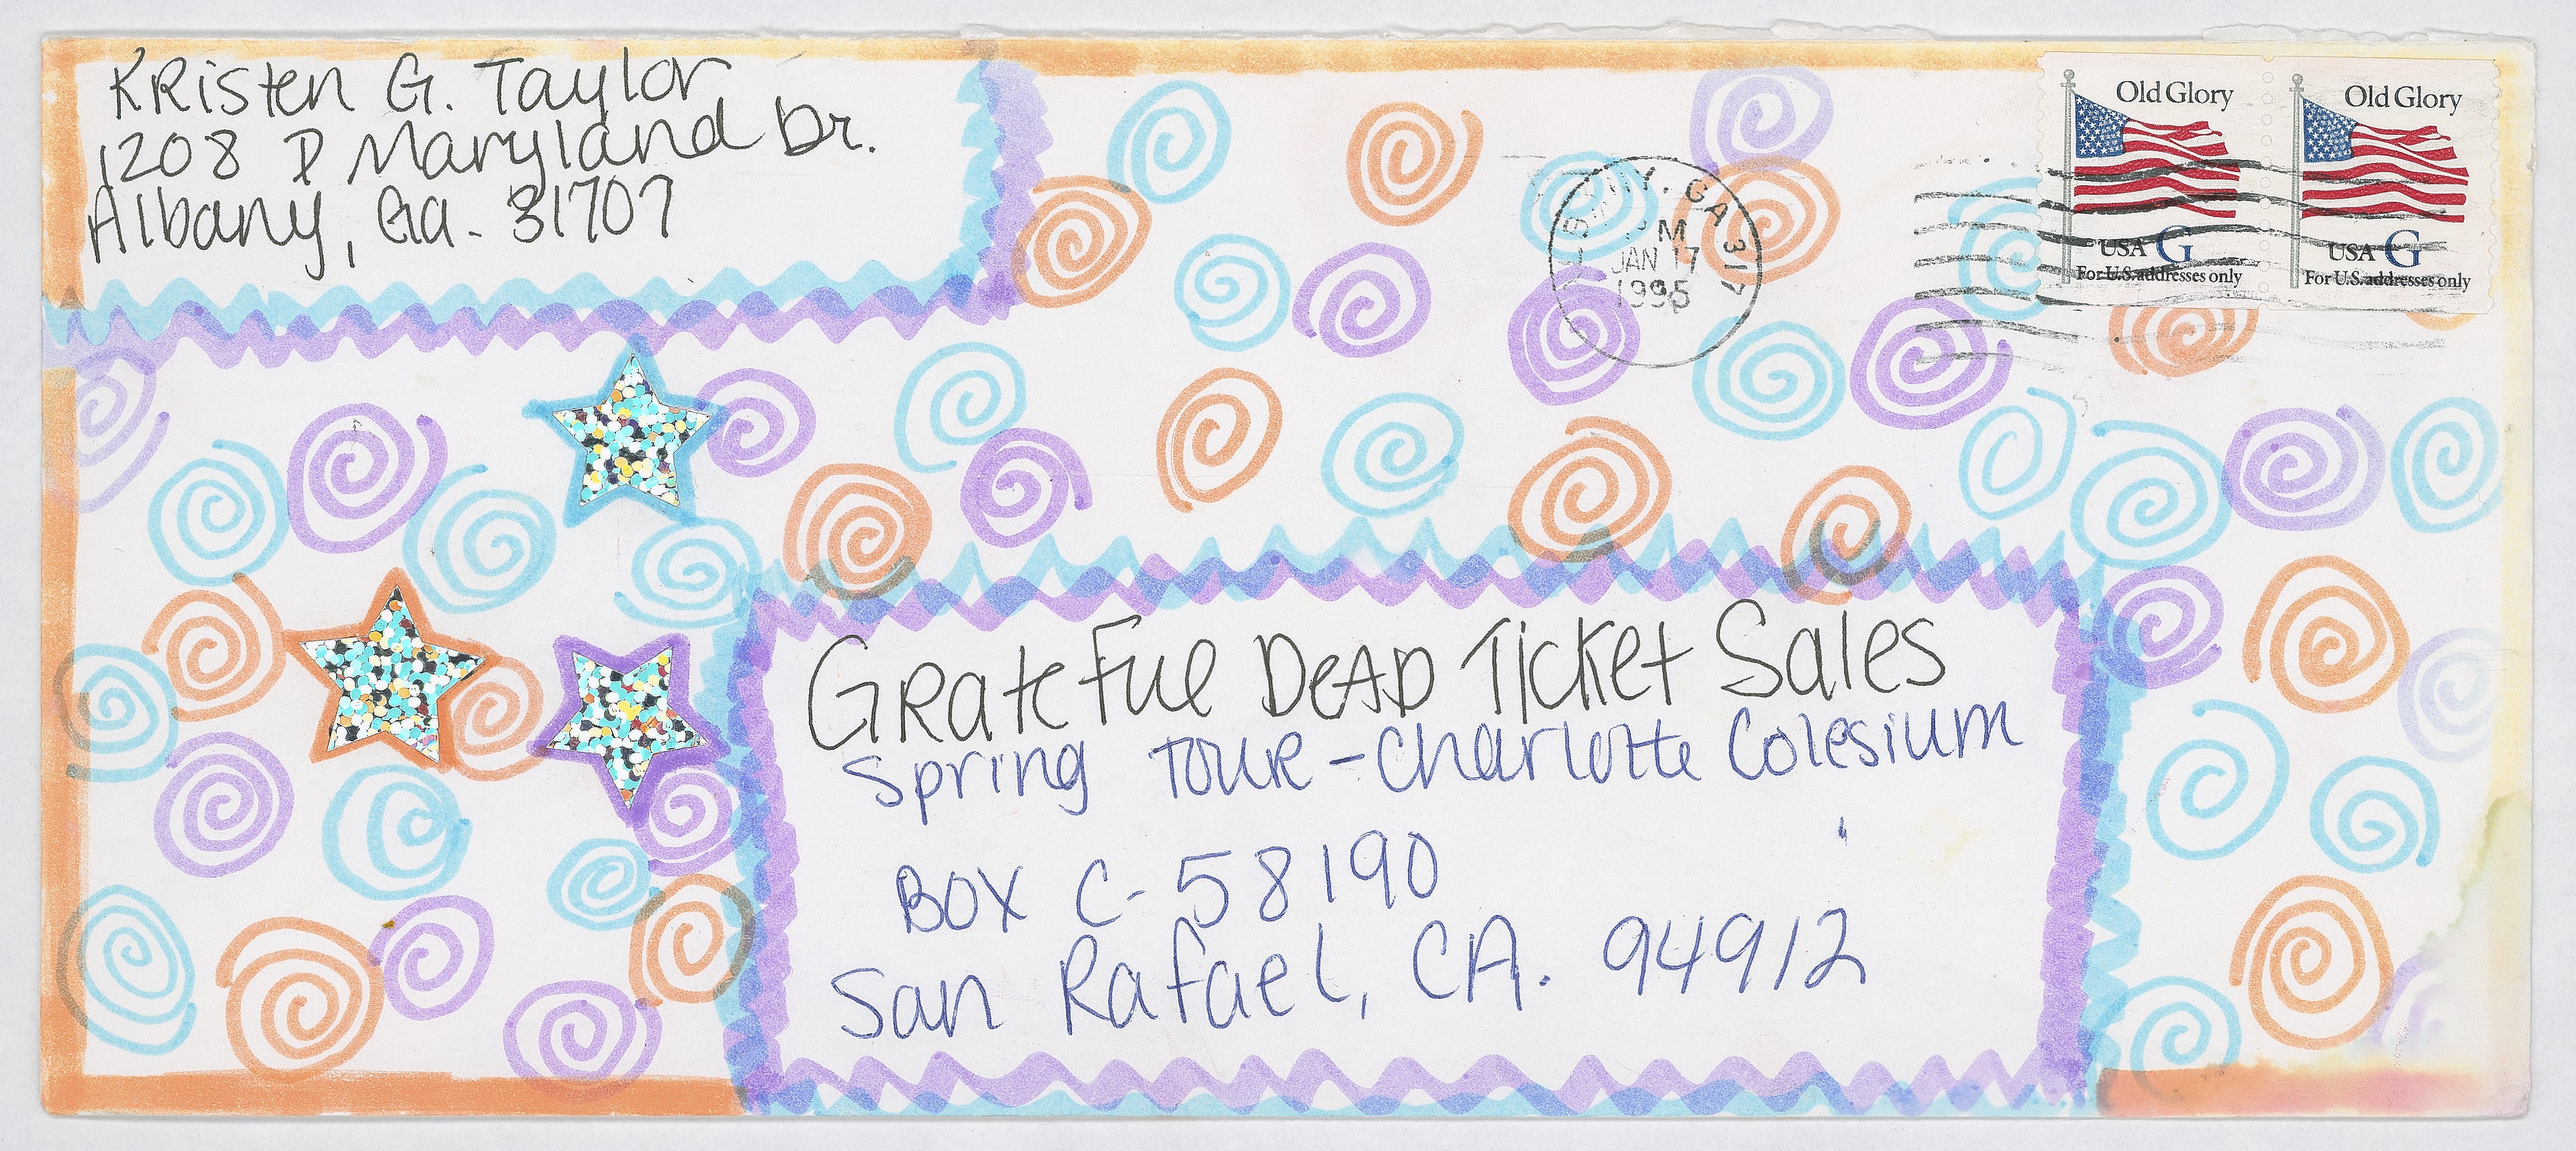 KRisten G. Taylor
1208 D Maryland Dr.
Albany, Ga. 31707
Old Glory
USA G
For U.S. addresses only
Old Glory
USA G
For U.S. addresses only
Y. GA 317
PM
JAN 17
1995
GRateFul DeAD Ticket Sales
Spring TOUR - Charlotte Colesium
BOX C- 58190
San Rafael, CA. 94912